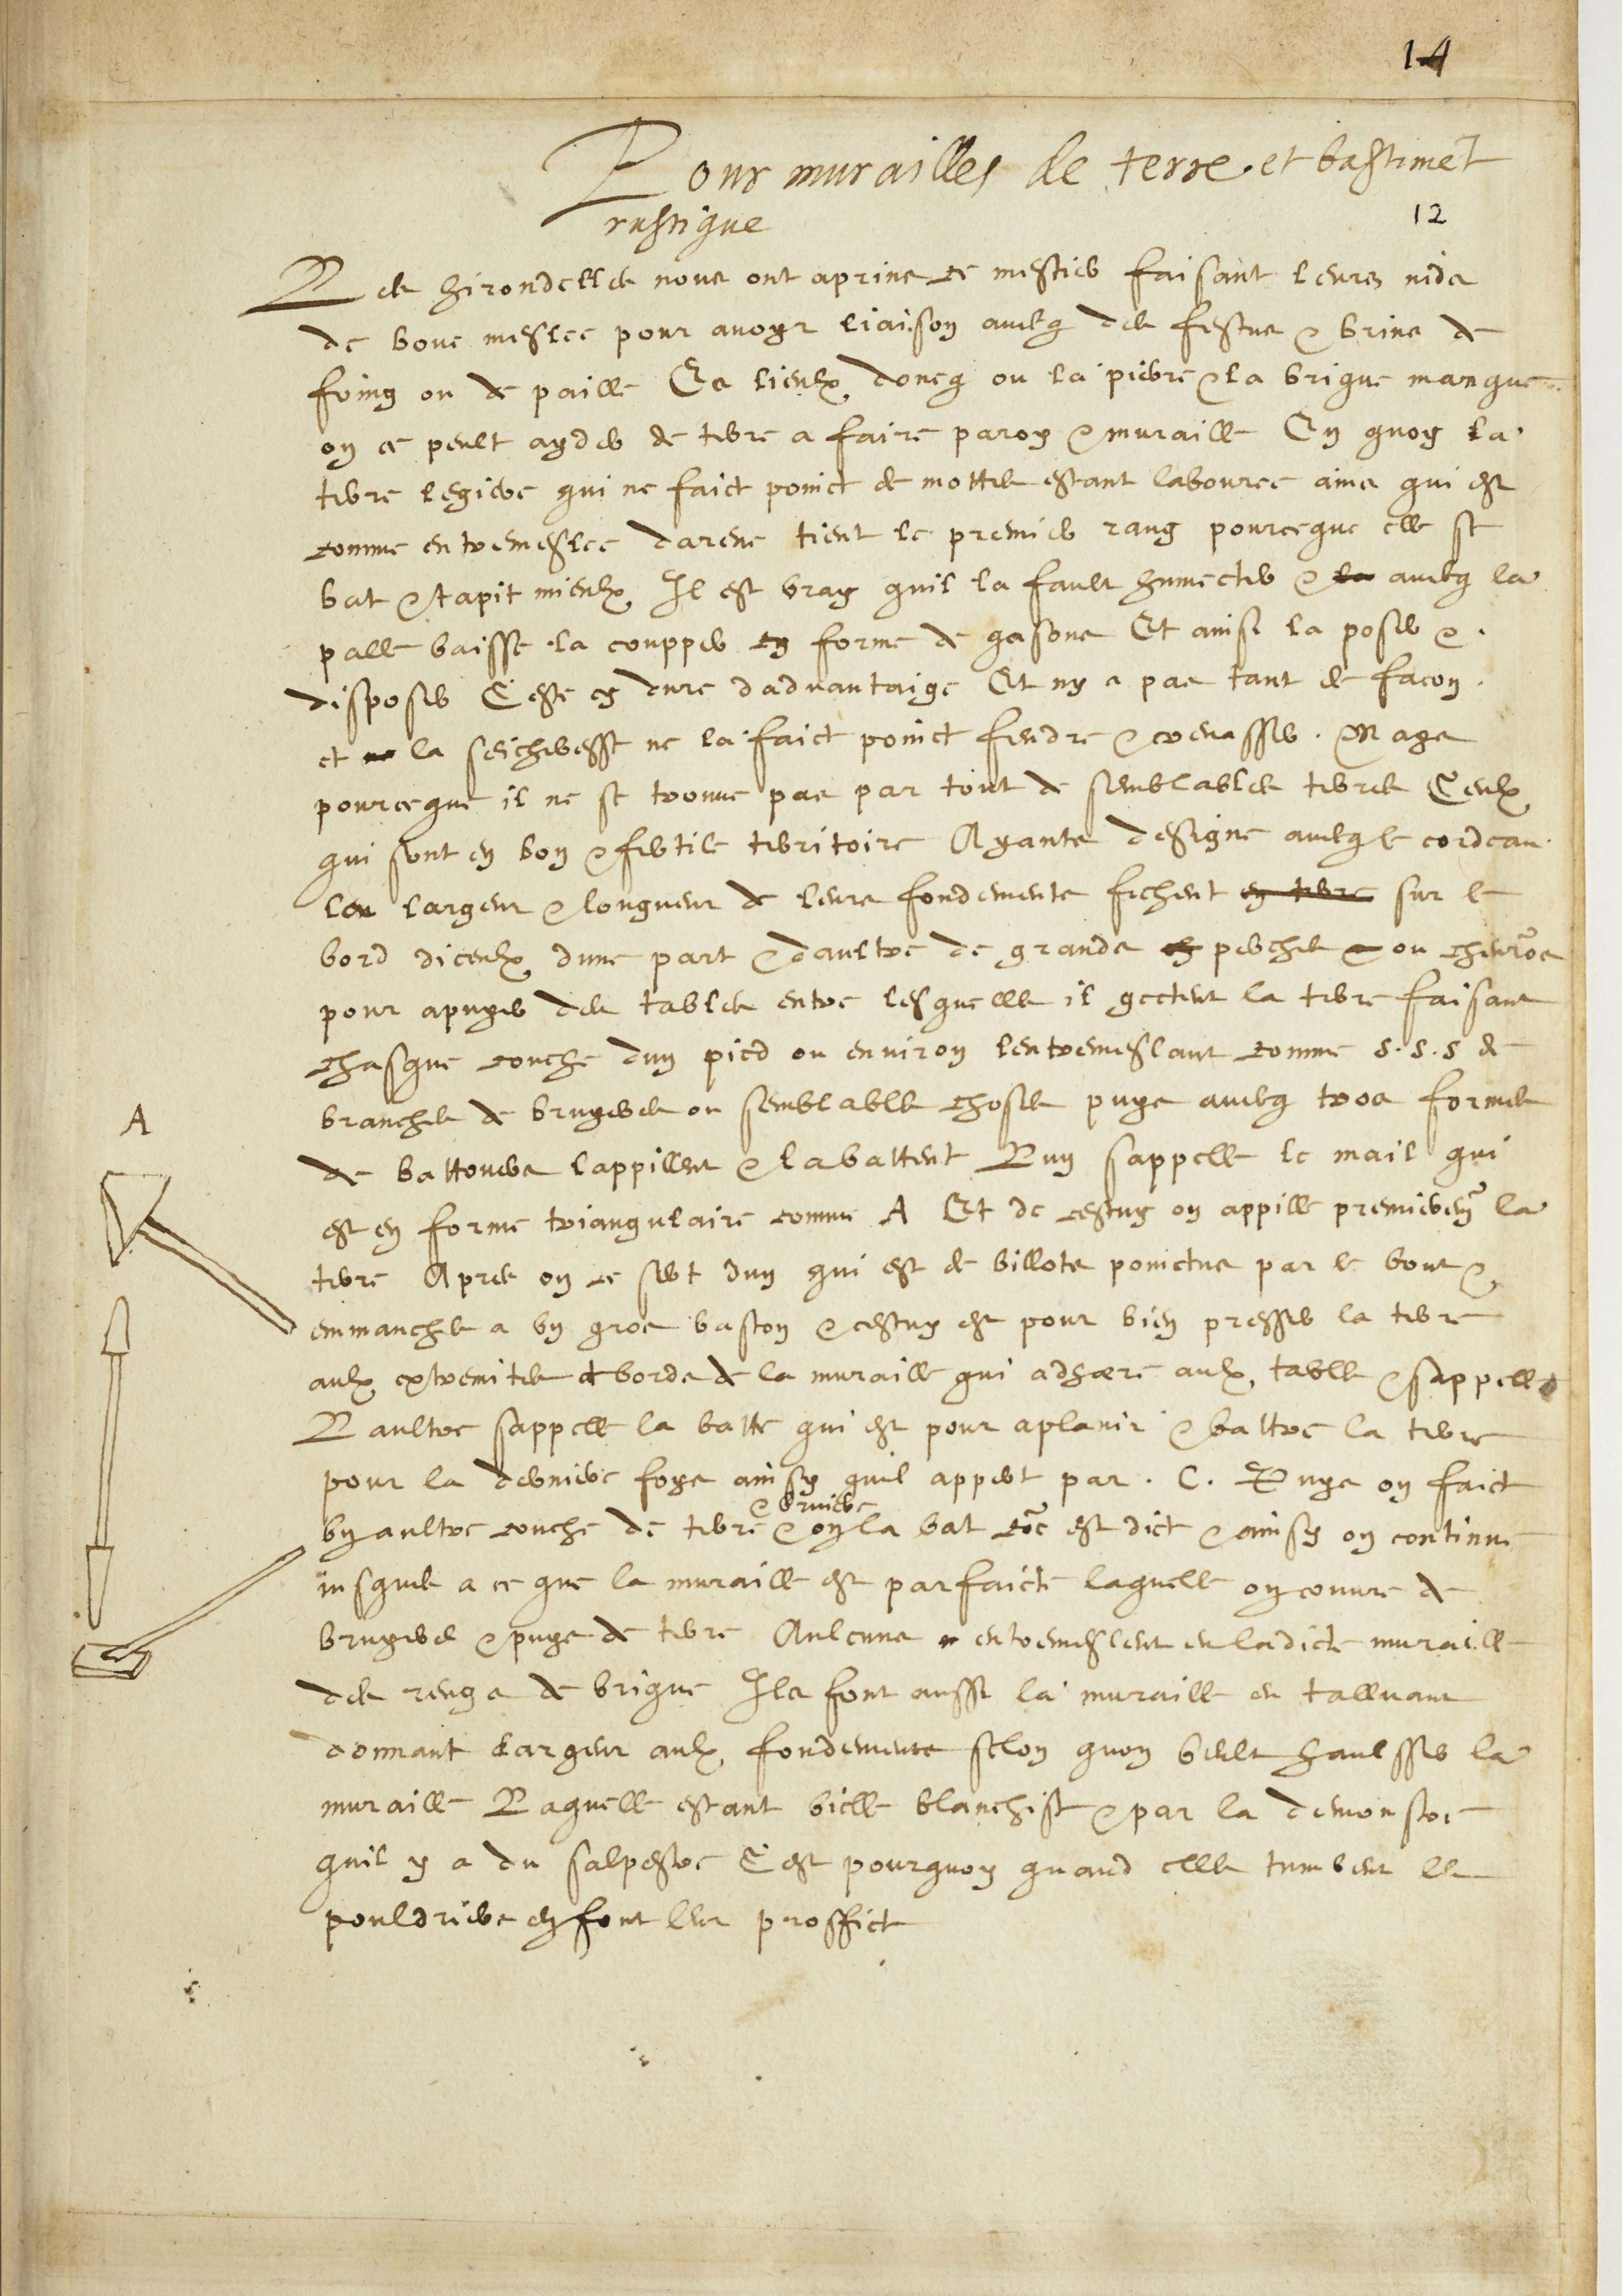 14
Pour murailles de terre et bastimẽt
rustique
12
Les hirondelles nous ont aprins ce mestier faisant leurs nids
de boue meslee pour avoyr liaison avecq des festus & brins de
foing ou de paille Es lieulx doncq ou la pierre & la brique manque
on se peult ayder de terre a faire paroy & muraille En quoy la
terre legiere qui ne faict poinct de mottes estant labouree ains qui est
comme entremeslee darene tient le premier rang pourceque elle se
bat & tapit mieulx Il est vray quil la fault humecter & la avecq la
palle baisse la coupper en forme de gasons Et ainsi la poser &
disposer Ceste cy dure dadvantaige Et ny a pas tant de facon
et ne la seicheresse ne la faict poinct fendre & crevasser. Mays
pourceque il ne se trouve pas par tout de semblables terres Ceulx
qui sont en bon & fertile territoire Ayants designe avecq le cordeau
leu largeur & longueur de leurs fondements fichent en terre sur le
bord diceulx dune part & daultre de grands perches ou chevrõs
pour apuyer des tables entre lesquelles il gectent la terre faisant
chasque couche dun pied ou environ lentremeslant comme s. s. s de
branches de bruyeres ou semblables choses puys avecq trois formes
de battoueres lappillent & la battent Lun sappelle le mail qui
est en forme triangulaire comme A Et de cestuy on appille premierem̃t la
terre Apres on se sert dun qui est de billots poinctus par le bout &
emmanches a un gros baston & cestuy est pour bien presser la terre
aulx extremites & bords de la muraille qui adhære aulx tables & sappelle
Laultre sappelle la batte qui est pour aplanir & battre la terre
pour la derniere foys ainsy quil appert par . C. Puys on faict
un aultre couche de terre & bruiere & on la bat cõe est dict & ainsy on continue
jusques a ce que la muraille est parfaicte laquelle on couvre de
bruyeres & puys de terre Aulcuns entremeslent en ladicte muraille
des rengs de brique Ils font aussi la muraille en talluant
donnant largeur aulx fondements selon quon veult haulsser la
muraille Laquelle estant vielle blanchist & par la demonstre
quil y a du salpestre Cest pourquoy quand elles tumbent les
pouldriers en font leur proffict
A